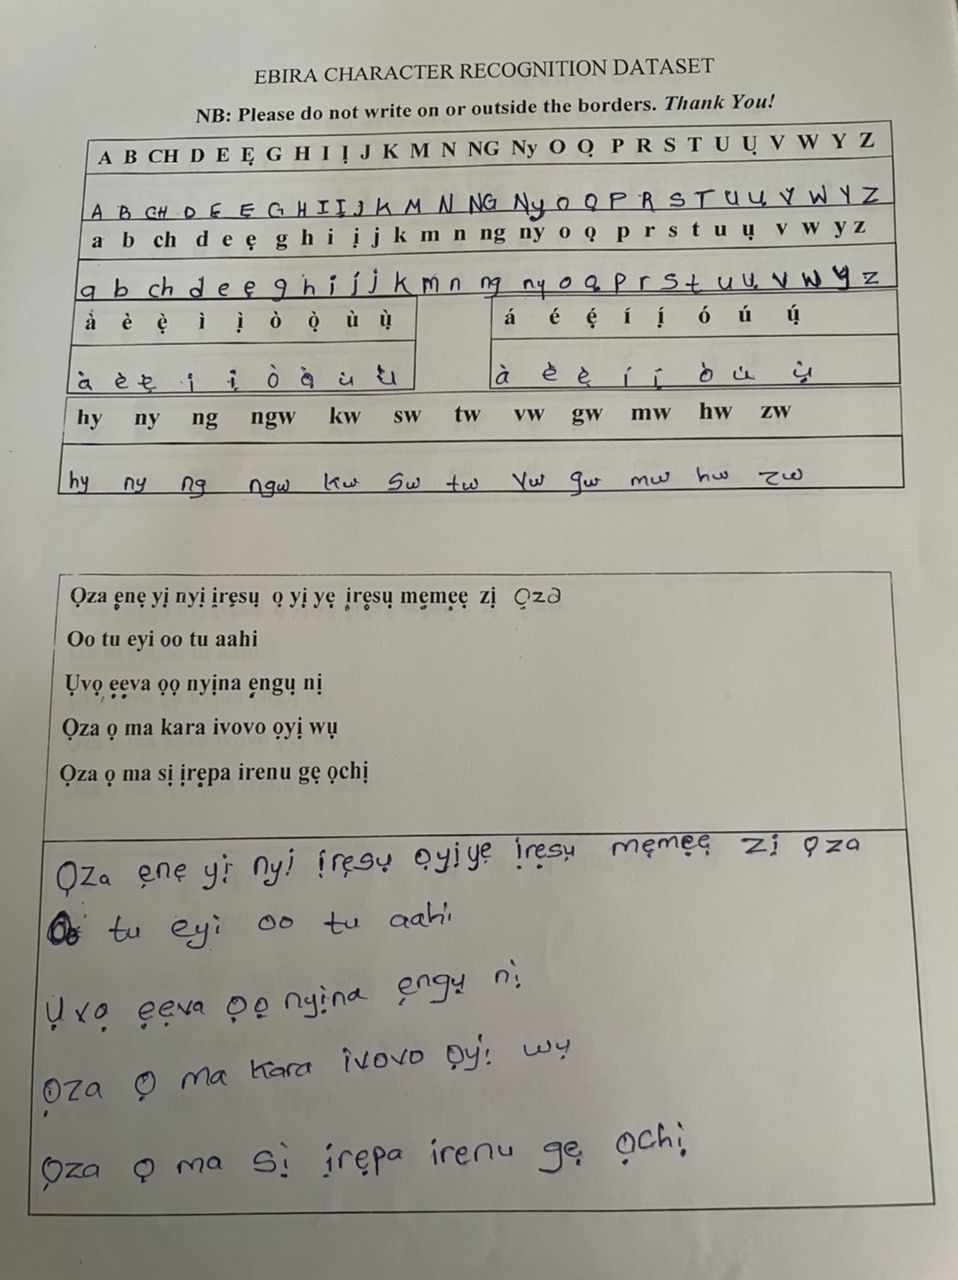 EBIRA CHARACTER RECOGNITION DATASET
NB: Please do not write on or outside the borders. Thank You!
A B CH D E Ẹ G H I Ị J K M N NG Ny O Ọ P R S T U Ụ V W Y Z
A B CH D E Ẹ G H I Ị J K M N NG Ny O Ọ P R S T U Ụ V W Y Z
a b ch d e ẹ g h i ị j k m n ng ny o ọ p r s t u ụ v w y z
a b ch d e ẹ g h i ị j k m n ng ny o ọ p r s t u ụ v w y z
à è ẹ̀ ì ị̀ ò ọ̀ ù ụ̀ á é ẹ́ í ị́ ó ú ụ́
à è ẹ̀ ị ị̀ ò ọ̀ ù ụ̀ à è ẹ̀ í ị́ ò ù ụ̀
hy ny ng ngw kw sw tw vw gw mw hw zw
hy ny ng ngw kw sw tw vw gw mw hw zw
Ọza ẹnẹ yị nyị ịrẹsụ ọ yị yẹ ịrẹsụ mẹmẹẹ zị Ọza
Oo tu eyi oo tu aahi
Ụvọ ẹẹva ọọ nyịna ẹngụ nị
Ọza ọ ma kara ivovo ọyị wụ
Ọza ọ ma sị ịrẹpa irenu gẹ ọchị
Ọza ẹnẹ yị nyị ịrẹsụ ọyịyẹ ịrẹsụ mẹmẹẹ zị ọza
Oo tu eyi oo tu aahi
Ụvọ ẹẹva ọọ nyịna ẹngụ nị
Ọza Ọ ma kara ivovo ọyị wụ
Ọza ọ ma sị ịrẹpa irenu gẹ ọchị